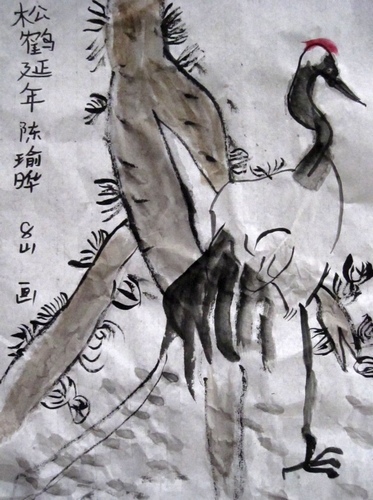 松鹤延年 陈瑜晔 8岁 画